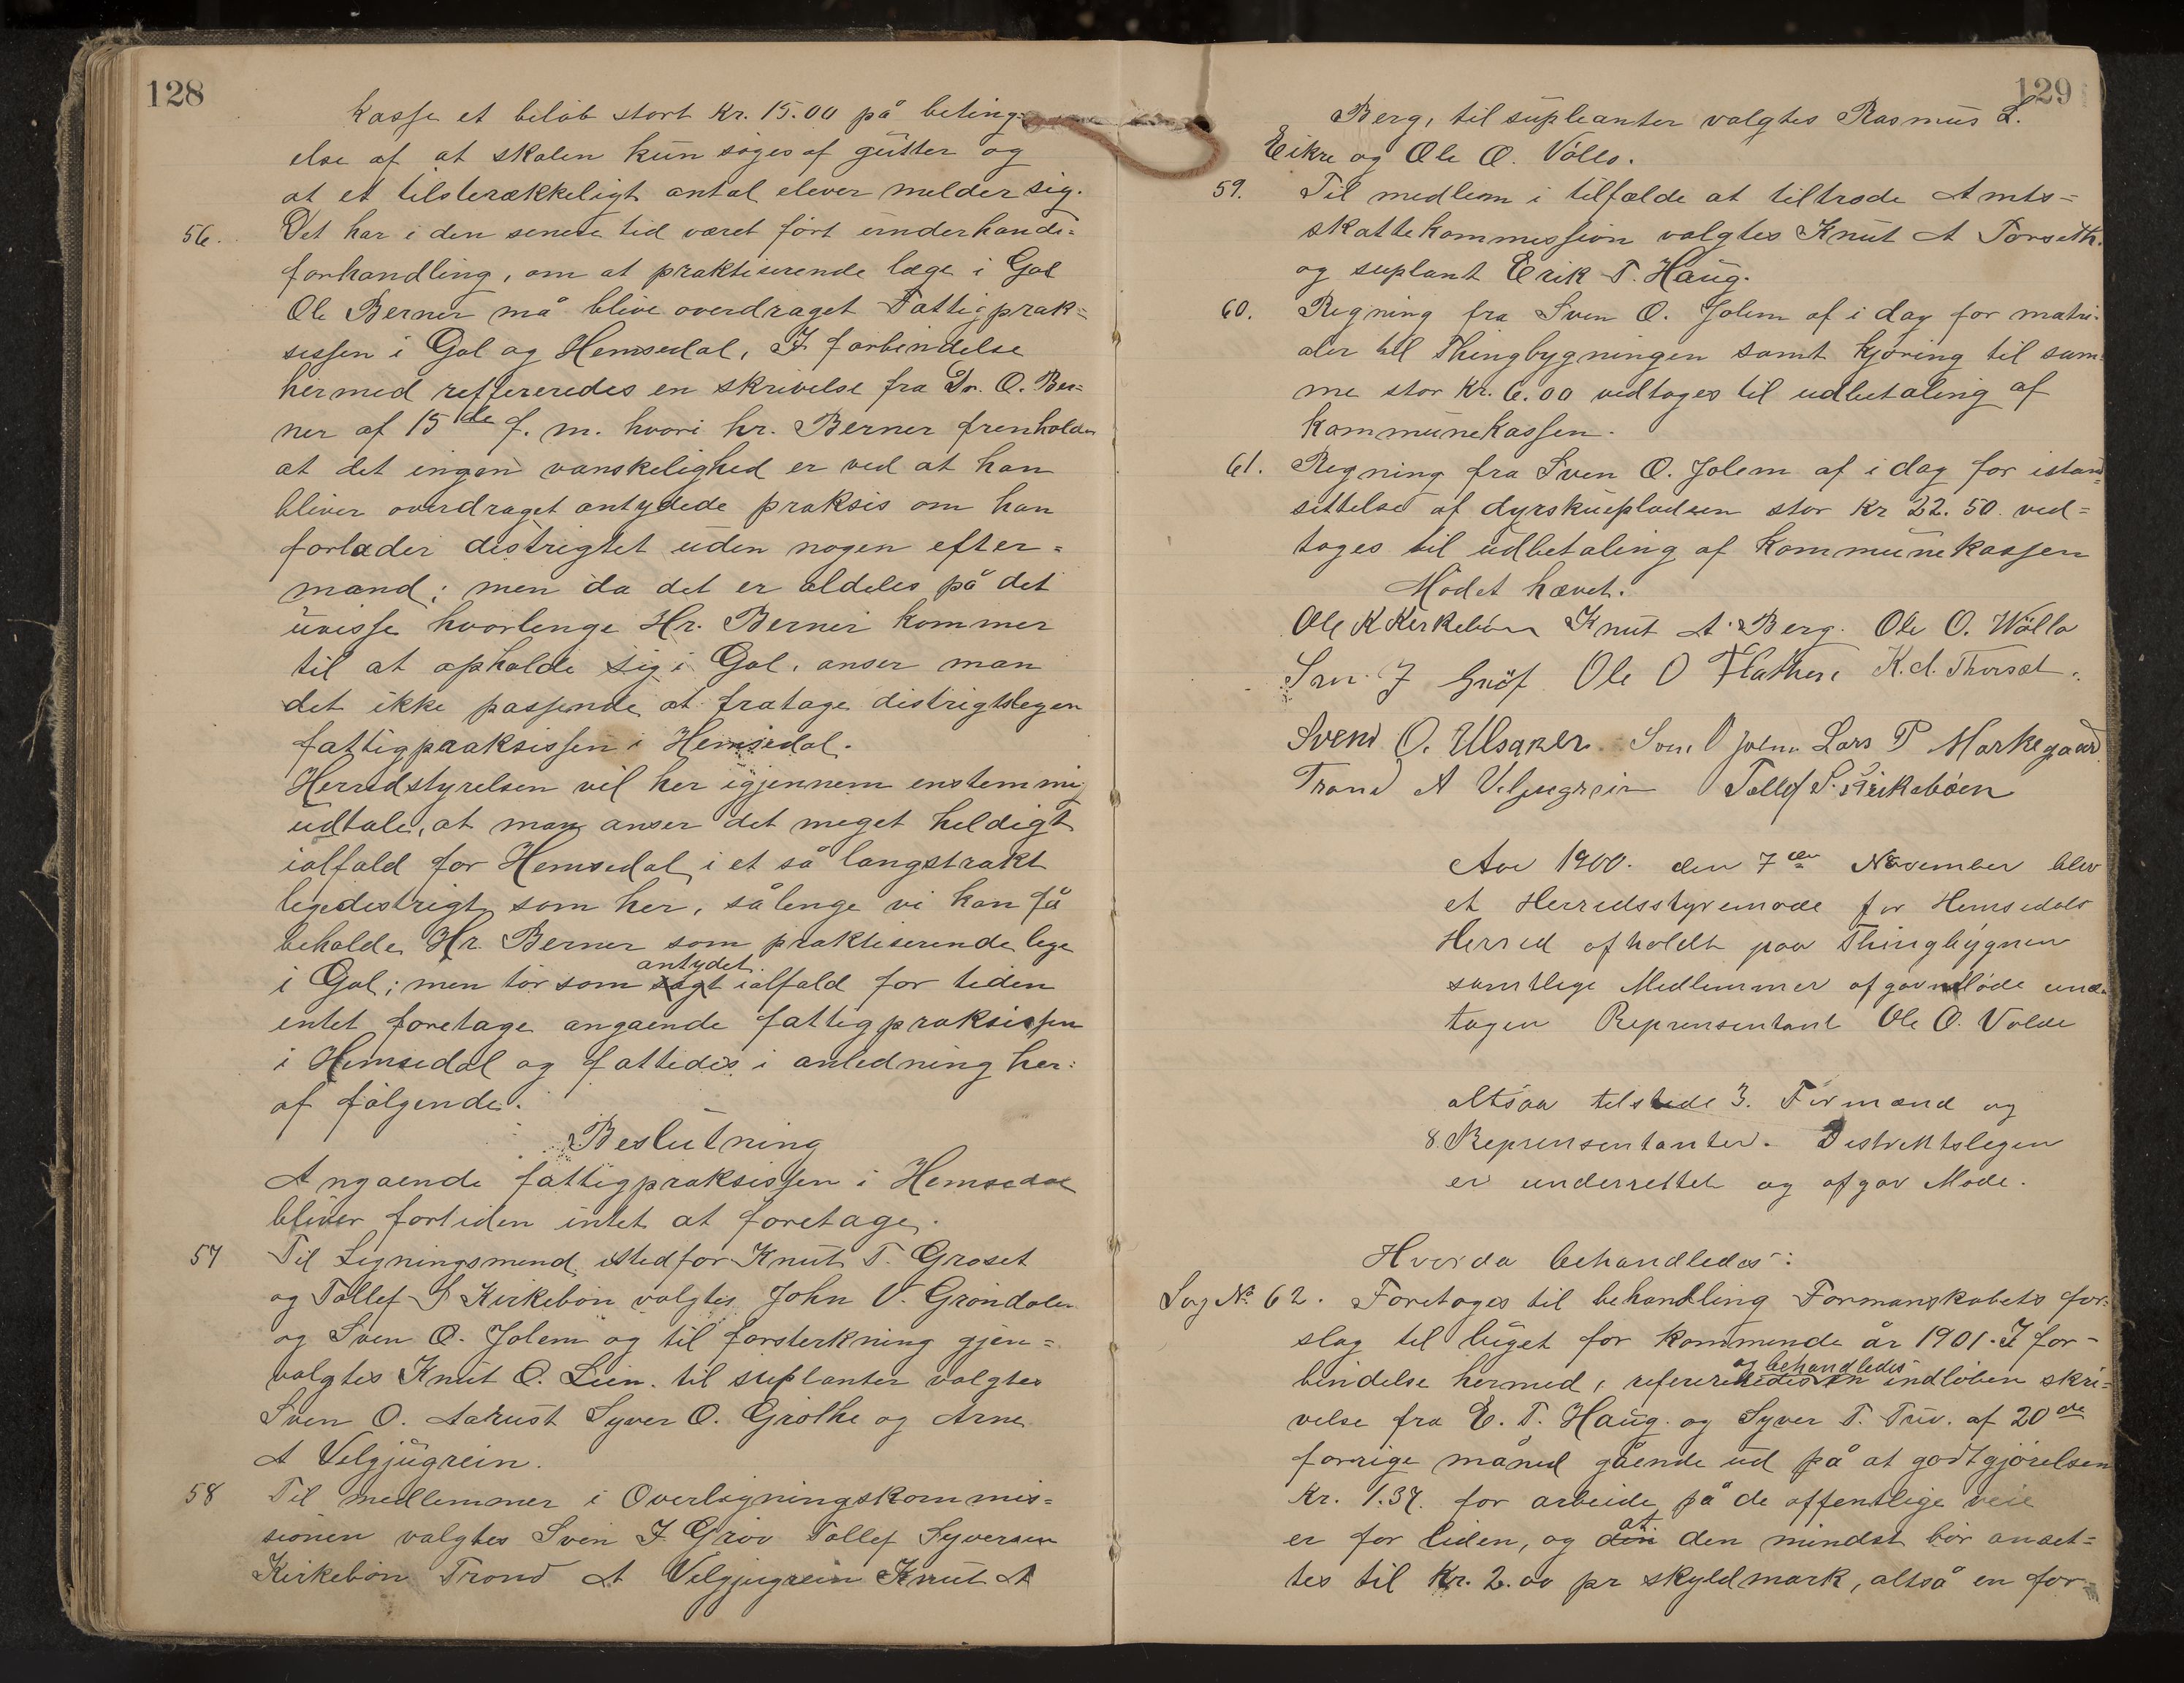 128
kasse et beløb stort Kr. 15.00 på beting=
else af at skolen kun søges af gutter og
at et tilstrækkeligt antal elever melder sig.
56. Det har i den senere tid været ført underhands=
forhandling, om at praktiserende læge i Gol
Ole Berner må blive overdraget Fattigprak=
sissen i Gol og Hemsedal, I forbindelse
hermed reffereredes en skrivelse fra Dr. O. Ber=
ner af 15de f. m. hvori hr. Berner fremholder
at det ingen vanskelighed er ved at han
bliver overdraget antydede praksis om han
forlader distrigtet uden nogen efter=
mand; men da det er aldeles på det
uvisse hvorlenge Hr. Berner kommer
til at opholde sig i Gol, anser man
det ikke passende at fratage distrigtslegen
fattigpraaksissen i Hemsedal.
Herredstyrelsen vil her igjennem enstemmig
udtale, at man anser det meget heldigt
ialfald for Hemsedal i et så langstrakt
legedistrigt som her, sålenge vi kan få
beholde Hr. Berner som praktiserende lege
antydet
i Gol; men tør som sagt ialfald for tiden
intet foretage angaende fattigpraksissen
i Hemsedal og fattedes i anledning her=
af følgende.
Beslutning
Angaende fattigpraksissen i Hemsedal
bliver fortiden intet at foretage.
57 Til Ligningsmend istedfor Knut T. Groset
og Tollef S Kirkebøn valgtes John V. Grøndalen
og Sven O. Jolem og til forsterkning gjen=
valgtes Knut O. Lien. til suplanter valgtes
Sven O. Aakust Syver O. Grøthe og Arne
A Velgjugrein.
58 Til medlemmer i Overligningskommis=
sionen valgtes Sven I. Grøv Tollef Syversen
Kirkebøn Trond A Velgjugrein Knut A
129
Berg, til supleanter valgtes Rasmus L.
Eikre og Ole O. Vøllo.
59. Til medlem i tilfælde at tiltrede Amts=
skattekommission valgtes Knut A Torseth.
og suplant Erik T. Haug.
60. Regning fra Sven O. Jolem af i dag for matri=
aler til Thingbygningen samt kjøring til sam=
me stor Kr. 6.00 vedtages til udbetaling af
kommunekassen.
61. Regning fra Sven O. Jolem af i dag for istand=
sittelse af dyrskuepladsen stor Kr 22.50 ved=
tages til udbetaling af kommunekassen
Mødet hævet.
Ole K Kirkebøen Knut A. Berg. Ole O. Wøllo
Sven J Grøf Ole O Flathen K. A. Thorset.
Svend O. Ulsaker. Sven O Jolem Lars P Markegaard
Trond A Velgjugrein Tollef S. Kirkebøen
Aar 1900. den 7de November blev
et Herredsstyremøde for Hemsedals
Herred afholdt paa Thingbygnen
samtlige Medlemmer afgav Møde und=
tagen Reprensentant Ole O. Volde
altsaa tilstede 3. Formænd og
8 Reprensentanter. Distriktslegen
er underrettet og afgav Møde.
Hvorda behandledes:
Sag No 62. Foretages til behandling Formanskabets for=
slag til buget for kommende år 1901. I for=
og behandledes
bindelse hermed, refereredes en indløben skri=
velse fra E. T. Haug. og Syver T. Tuv. af 20de
forrige måned gående ud på at godtgjørelsen
Kr. 1.37. for arbeide på de offentlige veie
at
er for liden, og den den mindst bør anset=
tes til Kr. 2.00 pr skyldmark, altså en for=